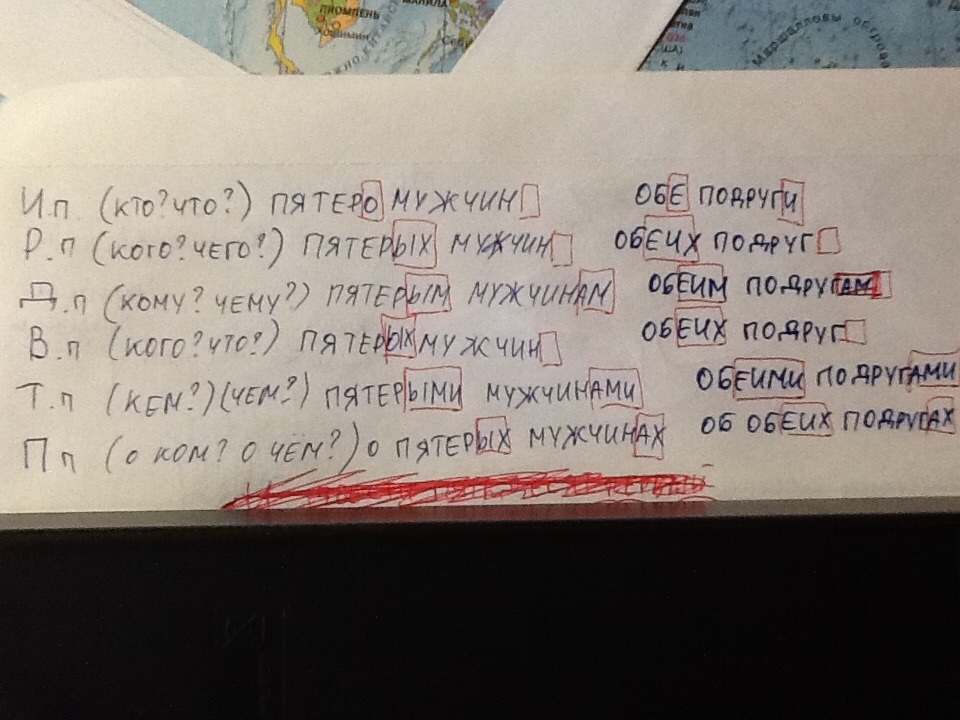 ПНОМПЕНЬ
МАНИЛА
Хошимин
Маршалловы острова
И.п. (кто? что?) ПЯТЕРО МУЖЧИН ОБЕ ПОДРУГИ
Р.п (кого? чего?) ПЯТЕРЫХ МУЖЧИН ОБЕИХ ПОДРУГ
Д.п (кому? чему?) ПЯТЕРЫМ МУЖЧИНАМ ОБЕИМ ПОДРУГАМ
В.п (кого? что?) ПЯТЕРЫХ МУЖЧИН ОБЕИХ ПОДРУГ
Т.п (КЕМ?) (ЧЕМ?) ПЯТЕРЫМИ МУЖЧИНАМИ ОБЕИМИ ПОДРУГАМИ
П п (о ком? о чём?) о ПЯТЕРЫХ МУЖЧИНАХ ОБ ОБЕИХ ПОДРУГАХ